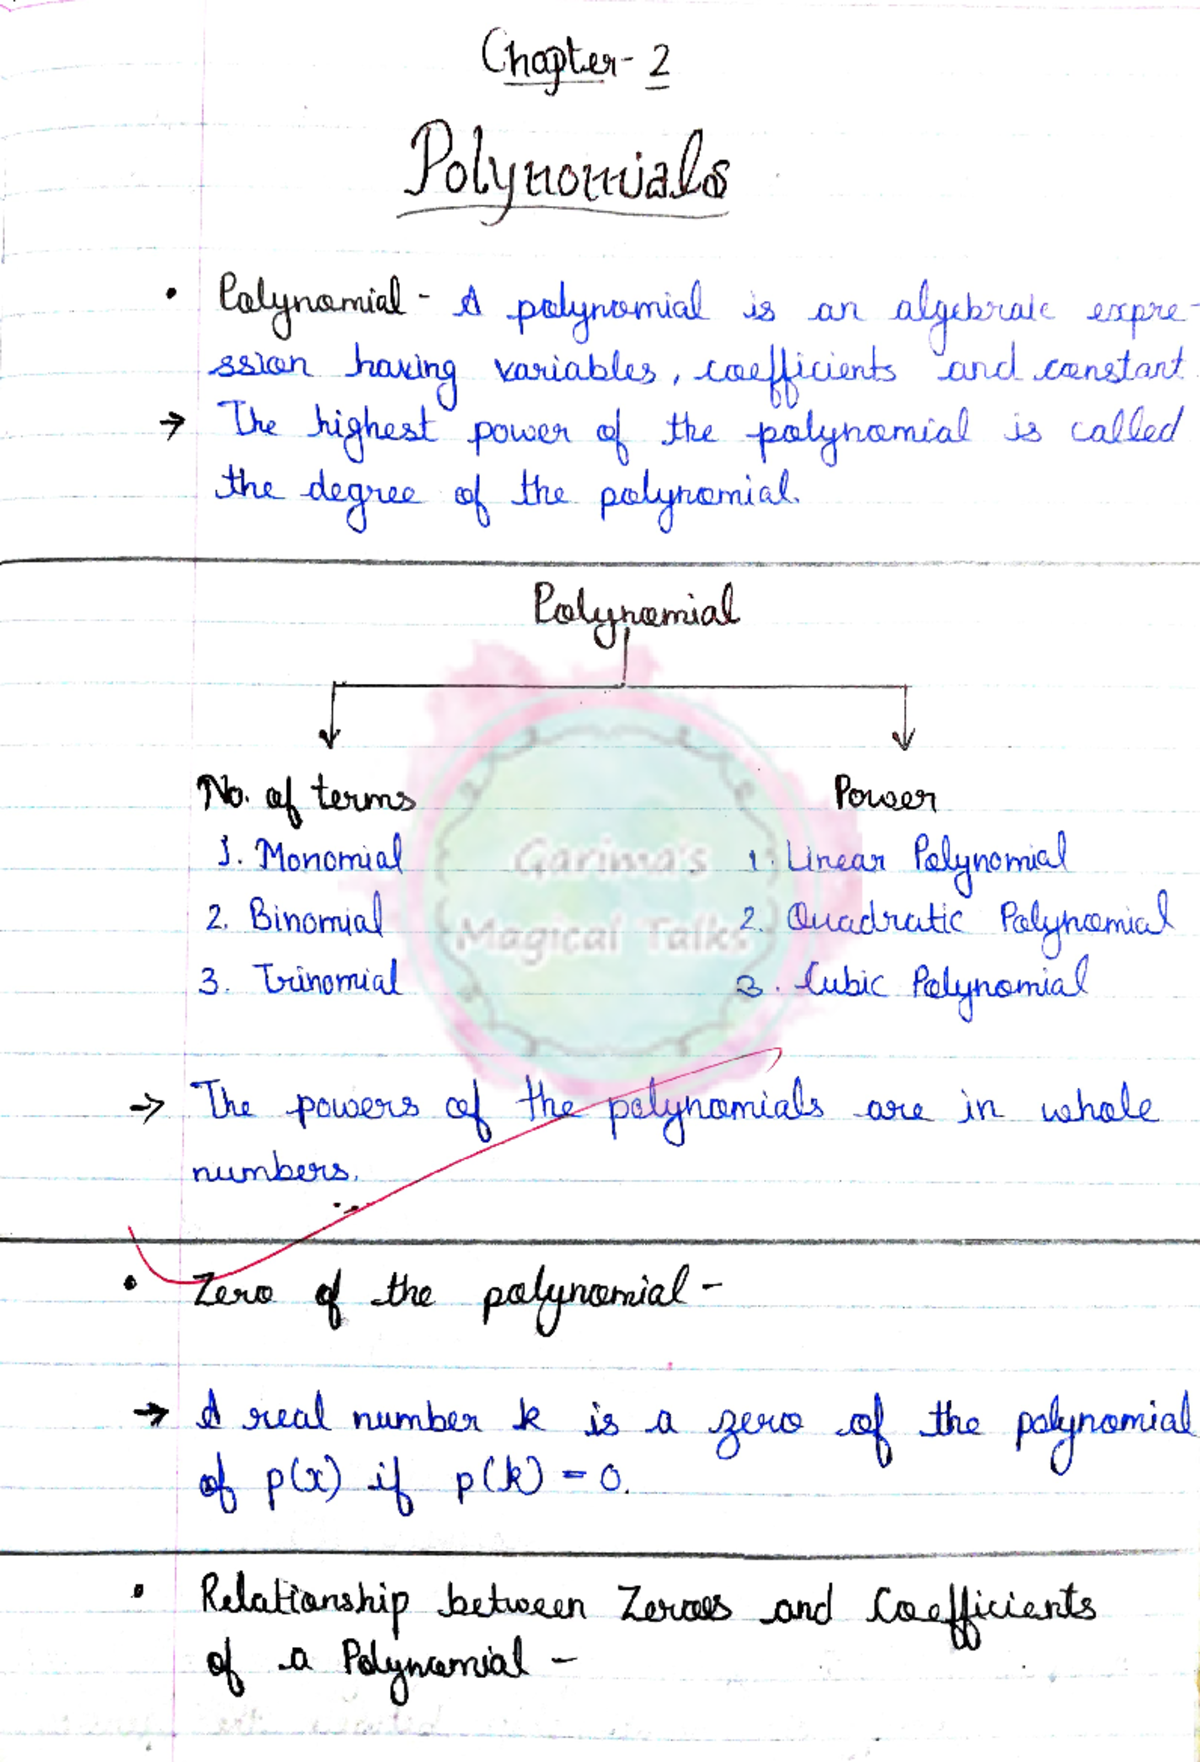 Chapter- 2
Polynomials
• Polynomial - A polynomial is an algebraic expre-
ssion having variables, coefficients and constant.
→ The highest power of the polynomial is called
the degree of the polynomial.
Polynomial
No. of terms Power
1. Monomial 1. Linear Polynomial
2. Binomial 2. Quadratic Polynomial
3. Trinomial 3. Cubic Polynomial
Garima's
Magical Talks
→ The powers of the polynomials are in whole
numbers.
• Zero of the polynomial -
→ A real number k is a zero of the polynomial
of p(x) if p(k) = 0.
• Relationship between Zeroes and Coefficients
of a Polynomial -